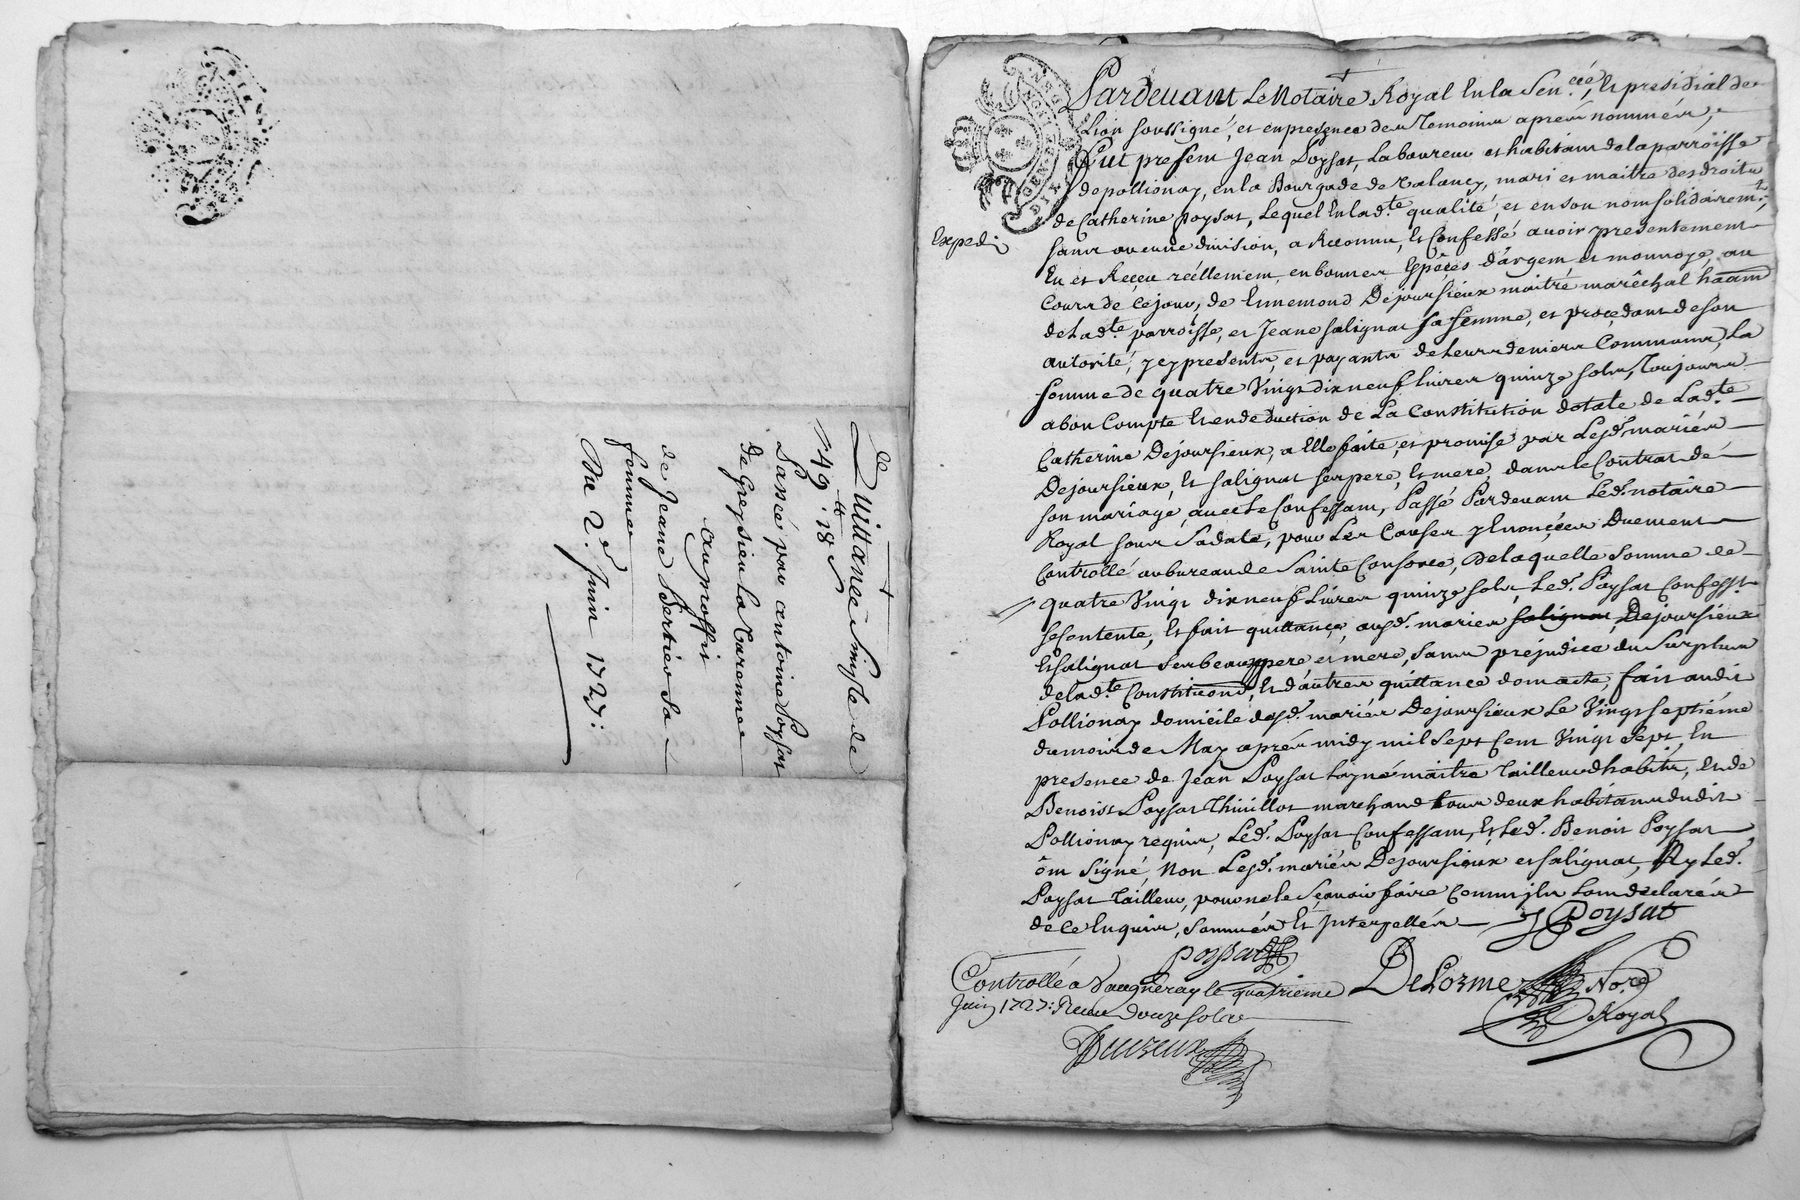 Quittance Simple de
de 149.tt 18 s
Passée par antoine Poyssat
de Gresieu la Varenne
au proffit
de Jeane Bertier Sa
femme
Du 2.e Juin 1727:
Pardevant Le Notaire Royal En la Sen.cée, Et presidial de
Lion soussigné, et en presence des Temoins aprés nommés,
Fut present Jean Poysat, Laboureur et habitant de la parroisse
de pollionay, en la Bourgade de Valancy, mari et maitre des droits
de Catherine poysat, Lequel En lad.te qualité, et en son nom solidairem.t,
Expedi
sans aucune division, a Reconnu, Et Confessé avoir presentement
Eu et Reçeu réellement, en bonnes Espêces d'argent et monnoye, au
Cours de Ce jour, de Ennemond Dejoursieux maitre marêchal háant
de Lad.te parroisse, et Jeane Salignat Sa femme, et proçedant de son
autorité, y cy presents, et payants de Leurs deniers Communs, La
somme de quatre Vingt dix neuf Livres quinze sols, Toujours
a bon Compte Et en deduction de La Constitution dotale de Lad.te
Catherine Dejoursieux, a Elle faite, et promise par Lesd. mariés
Dejoursieux, Et Salignat ses pere, Et mere, dans le Contrat de
son mariage, avec Le Confessant, Passé Pardevant Led. notaire
Royal sous Sa date, pour Les Causes y Enonçées Duement
Controllé au bureau de Sainte Consorce, De laquelle somme de
quatre Vingt dix neuf Livres quinze sols, Led. Poysat Confess.t
se Contente, Et fait quittance, ausd. mariés Salignat, Dejoursieux
Et Salignat ses beaux pere, et mere, sans prejudice du Surplus
de lad.te Constitu͠on, Et d'autres quittance dont acte, fait audit
Pollionay domicile desd. mariés Dejoursieux Le Vingt septiéme
du mois de May aprés midy mil Sept Cent Vingt Sept, En
presence de Jean Poysat Layné maitre Tailleur d'habits, Et de
Benoist Poysat Thivillot marchand tous deux habitants dudit
Pollionay requis, Led. Poysat Confessant, Et Led. Benoit Poysat
ôn Signé, Non Lesd. mariés Dejoursieux et Salignat, Ny Led.
Poysat Tailleur, pour ne le Sçavoir faire Comm'ils L'ont declarés
de Ce Enquis, Sommés Et Interpellés J Poysat
poysat
DeLorme No.re
Royal
Controllé a Vaugneray le quatrieme
Juin 1727: Receu douze sols